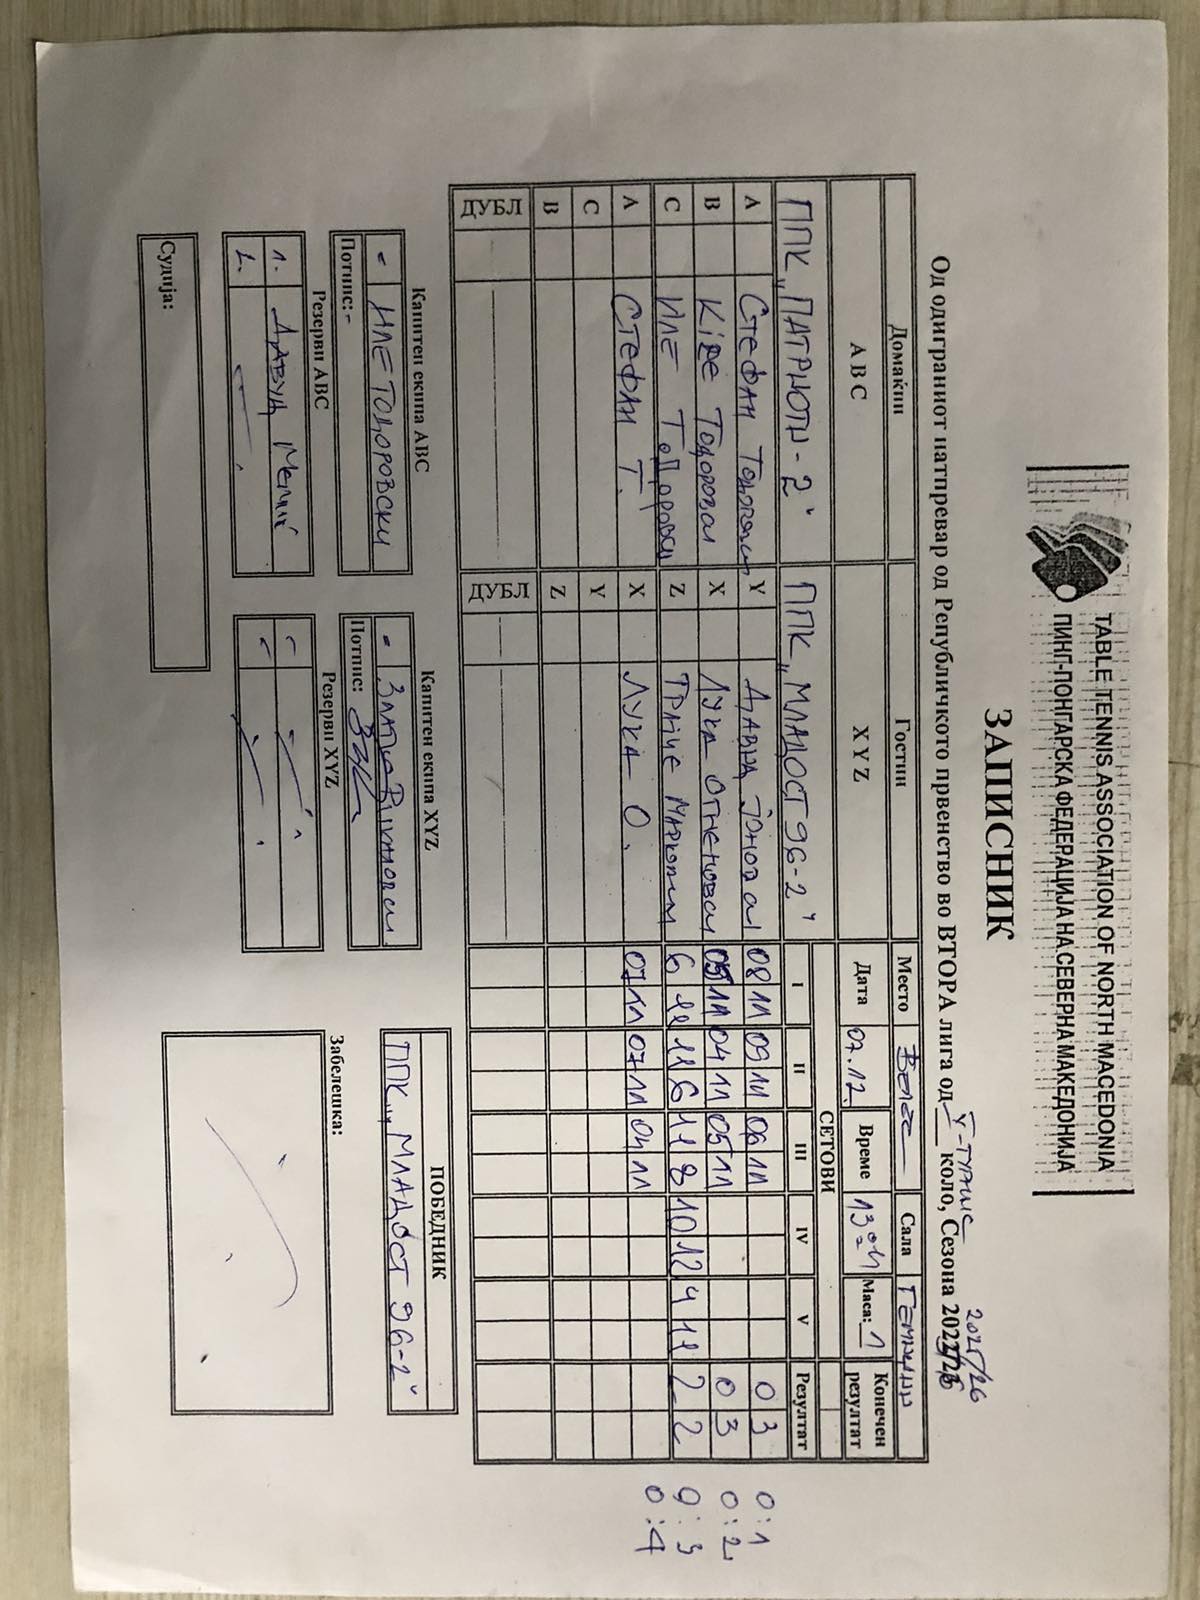 TABLE TENNIS ASSOCIATION OF NORTH MACEDONIA
ПИНГ-ПОНГАРСКА ФЕДЕРАЦИЈА НА СЕВЕРНА МАКЕДОНИЈА
ЗАПИСНИК
2025/26
Од одиграниот натпревар од Републичкото првенство во ВТОРА лига од V-ТУРНС коло, Сезона
Домаќин Гостин Место Велес Сала Гемиџии
A B C X Y Z Дата 07.12. Време 13:04 Маса: 1 Конечен резултат
ППК „ПАТРИОТИ-2“ ППК „МЛАДОСТ 96-2“ СЕТОВИ
I II III IV V Резултат
A СТЕФАН Y 08 11 09 11 06 11 0 3 0:1
B X ЛУКА ОГНЕНОВСКИ 11 04 11 05 11 0 3 0:2
C ИЛЕ Z ТРАЈЧЕ 6 11 11 6 11 8 10 12 4 11 2 2 0:3
A СТЕФАН Т. X ЛУКА О. 07 11 07 11 04 11 0:4
C Y
B Z
ДУБЛ ДУБЛ
Капитен екипа ABC Капитен екипа XYZ ПОБЕДНИК
- ИЛЕ ТОДОРОВСКИ - ППК „МЛАДОСТ 96-2“
Потпис:- Потпис:
Резерви ABC Резерви XYZ Забелешка:
1. ДАВУД
2.
Судија: